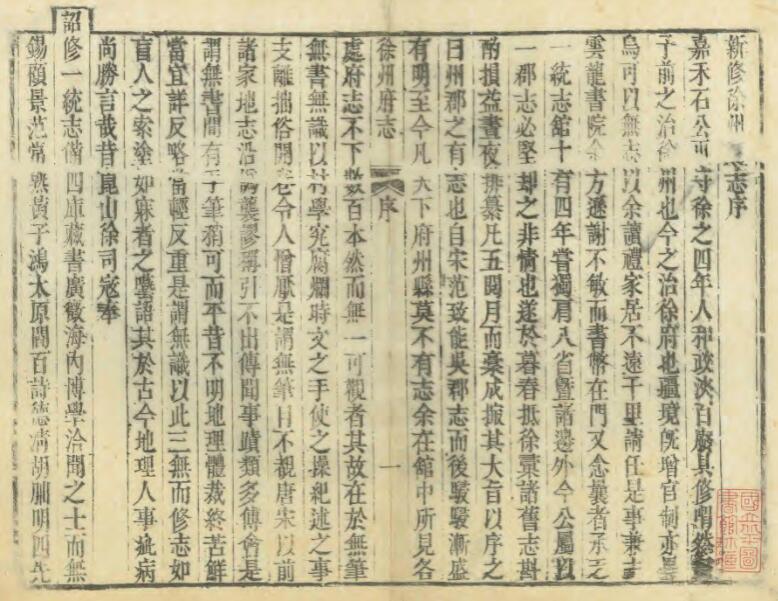 新修徐州志序
嘉禾石公守徐之四年人和政浹百廢具修喟然
子前之治徐州也今之治徐府也疆境旣增官制亦
烏可以無志以余讀禮家居不遠千里請任是事兼主
雲龍書院余方遜謝不敏而書幣在門又念曩者承乏
一統志館十有四年嘗獨肩八省暨諸邊外今公屬以
一郡志必堅却之非情也遂於暮春抵徐裒諸舊志斟
酌損益晝夜排纂凡五閱月而稾成掀其大旨以序之
曰州郡之有志也自宋范致能吳郡志而後駸駸漸盛
有明至今凡天下府州縣莫不有志余在館中所見各
徐州府志 序 一
處府志不下數百本然而無一可觀者其故在於無筆
無書無識以村學究腐爛時文之手使之操紀述之事
支離拙俗開卷令人憎厭是謂無筆目不覩唐宋以前
諸家地志沿譌襲謬稱引不出傳聞事蹟類多傅會是
謂無書間有手筆稍可而平昔不明地理體裁終苦鮮
當宜詳反略當輕反重是謂無識以此三無而修志如
盲人之索塗如寐者之囈語其於古今地理人事疵病
尚勝言哉昔崑山徐司寇奉
詔修一統志偕四庫藏書廣徵海內博學洽聞之士而無
錫顧景范常熟黃子鴻太原閻百詩德清胡朏明四先